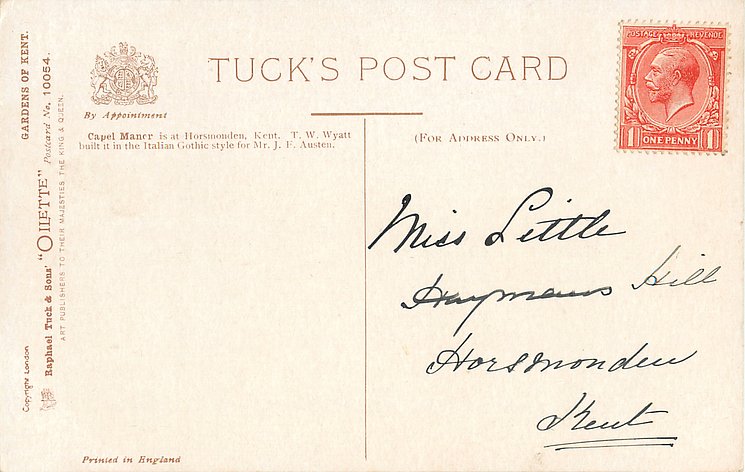 TUCK'S POST CARD
POSTAGE REVENUE
1 ONE PENNY 1
By Appointment
Capel Manor is at Horsmonden, Kent. T. W. Wyatt
built it in the Italian Gothic style for Mr. J. F. Austen.
(FOR ADDRESS ONLY.)
Miss Little
Haymans Hill
Horsmonden
Kent
Printed in England
GARDENS OF KENT.
Raphael Tuck & Sons' "OILETTE" Postcard No. 10054.
ART PUBLISHERS TO THEIR MAJESTIES THE KING & QUEEN.
Copyright London